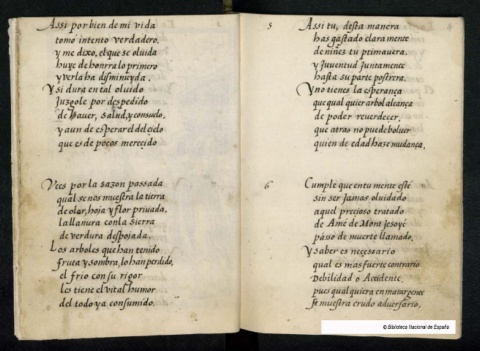 Assi por bien de mi vida
tomo intento verdadero,
y me dixo, el que se olvida
huye de honrra lo primero
y verla disminuyda.
Y si dura en tal oluido
Juzgole por despedido
de hauer, salud, y consuelo,
y aun de esperar el del cielo
que es de pocos merecido
Ves por la sazon passada
qual se nos muestra la tierra
de olor, hoja y flor privada,
la llanura con la sierra
de verdura despojada.
Los arboles que han tenido
fruta y sombra, lo han perdido,
el frio con su rigor
les tiene el vital humor
del todo ya consumido.
5 Assi tu, desta manera
has gastado claramente
de niñez tu primauera,
y Juventud Juntamente
hasta su parte postrera.
Y no tienes la esperança
que qual quier arbol alcança
de poder reverdecer,
que atras no puede bolver
quien de edad haze mudança.
6 Cumple que en tu mente esté
sin ser Jamas olvidado
aquel precioso tratado
de Amé de Mont Jesoyé
passo de muerte llamado,
Y saber es necesario
qual es mas fuerte contrario
Debilidad o Accidente,
pues qual quiera
se muestra crudo adversario,
© Biblioteca Nacional de España